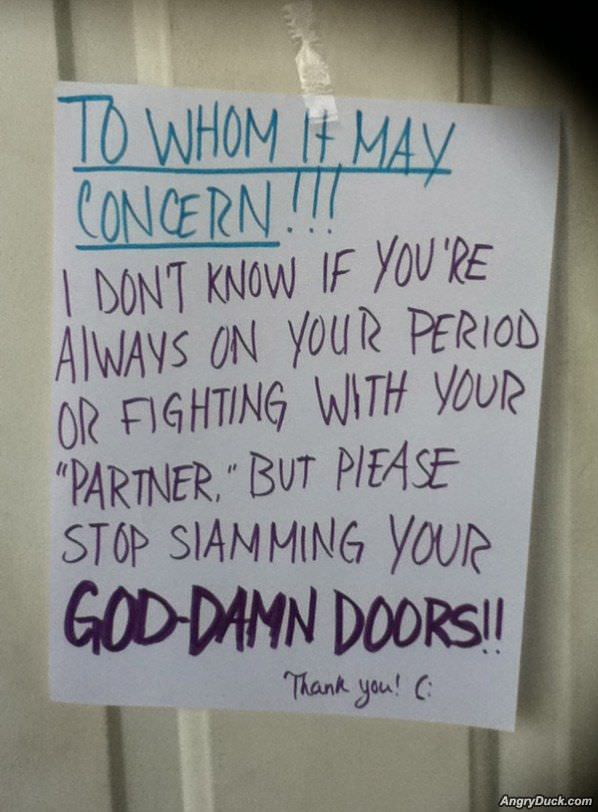 TO WHOM It MAY
CONCERN!!!
I DON'T KNOW IF YOU'RE
AlWAYS ON YOUR PERIOD
OR FIGHTING WITH YOUR
"PARTNER," BUT PlEASE
STOP SlAMMING YOUR
GOD-DAMN DOORS!!
Thank you! C:
AngryDuck.com